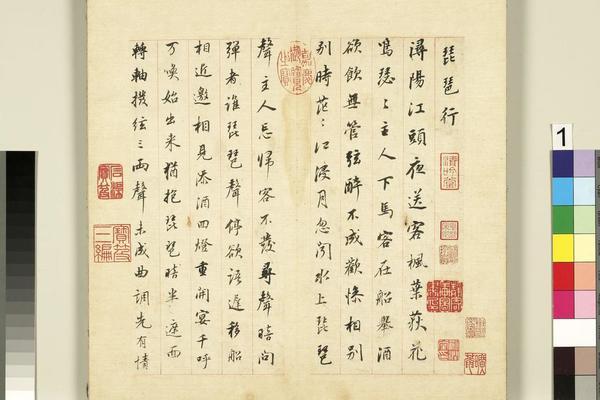 琵琶行
潯陽江頭夜送客楓葉荻花
瑟〻主人下馬客在船舉酒
欲飲無管絃醉不成歡慘相別
別時茫〻江浸月忽聞水上琵琶
聲主人忘歸客不發尋聲暗問
彈者誰琵琶聲停欲語遲移船
相近邀相見添酒回燈重開宴千呼
万喚始出来猶抱琵琶半遮面
轉軸撥絃三兩聲未成曲調先有情
嘉慶御覽之寶
石渠寶笈
寶笈三編
1